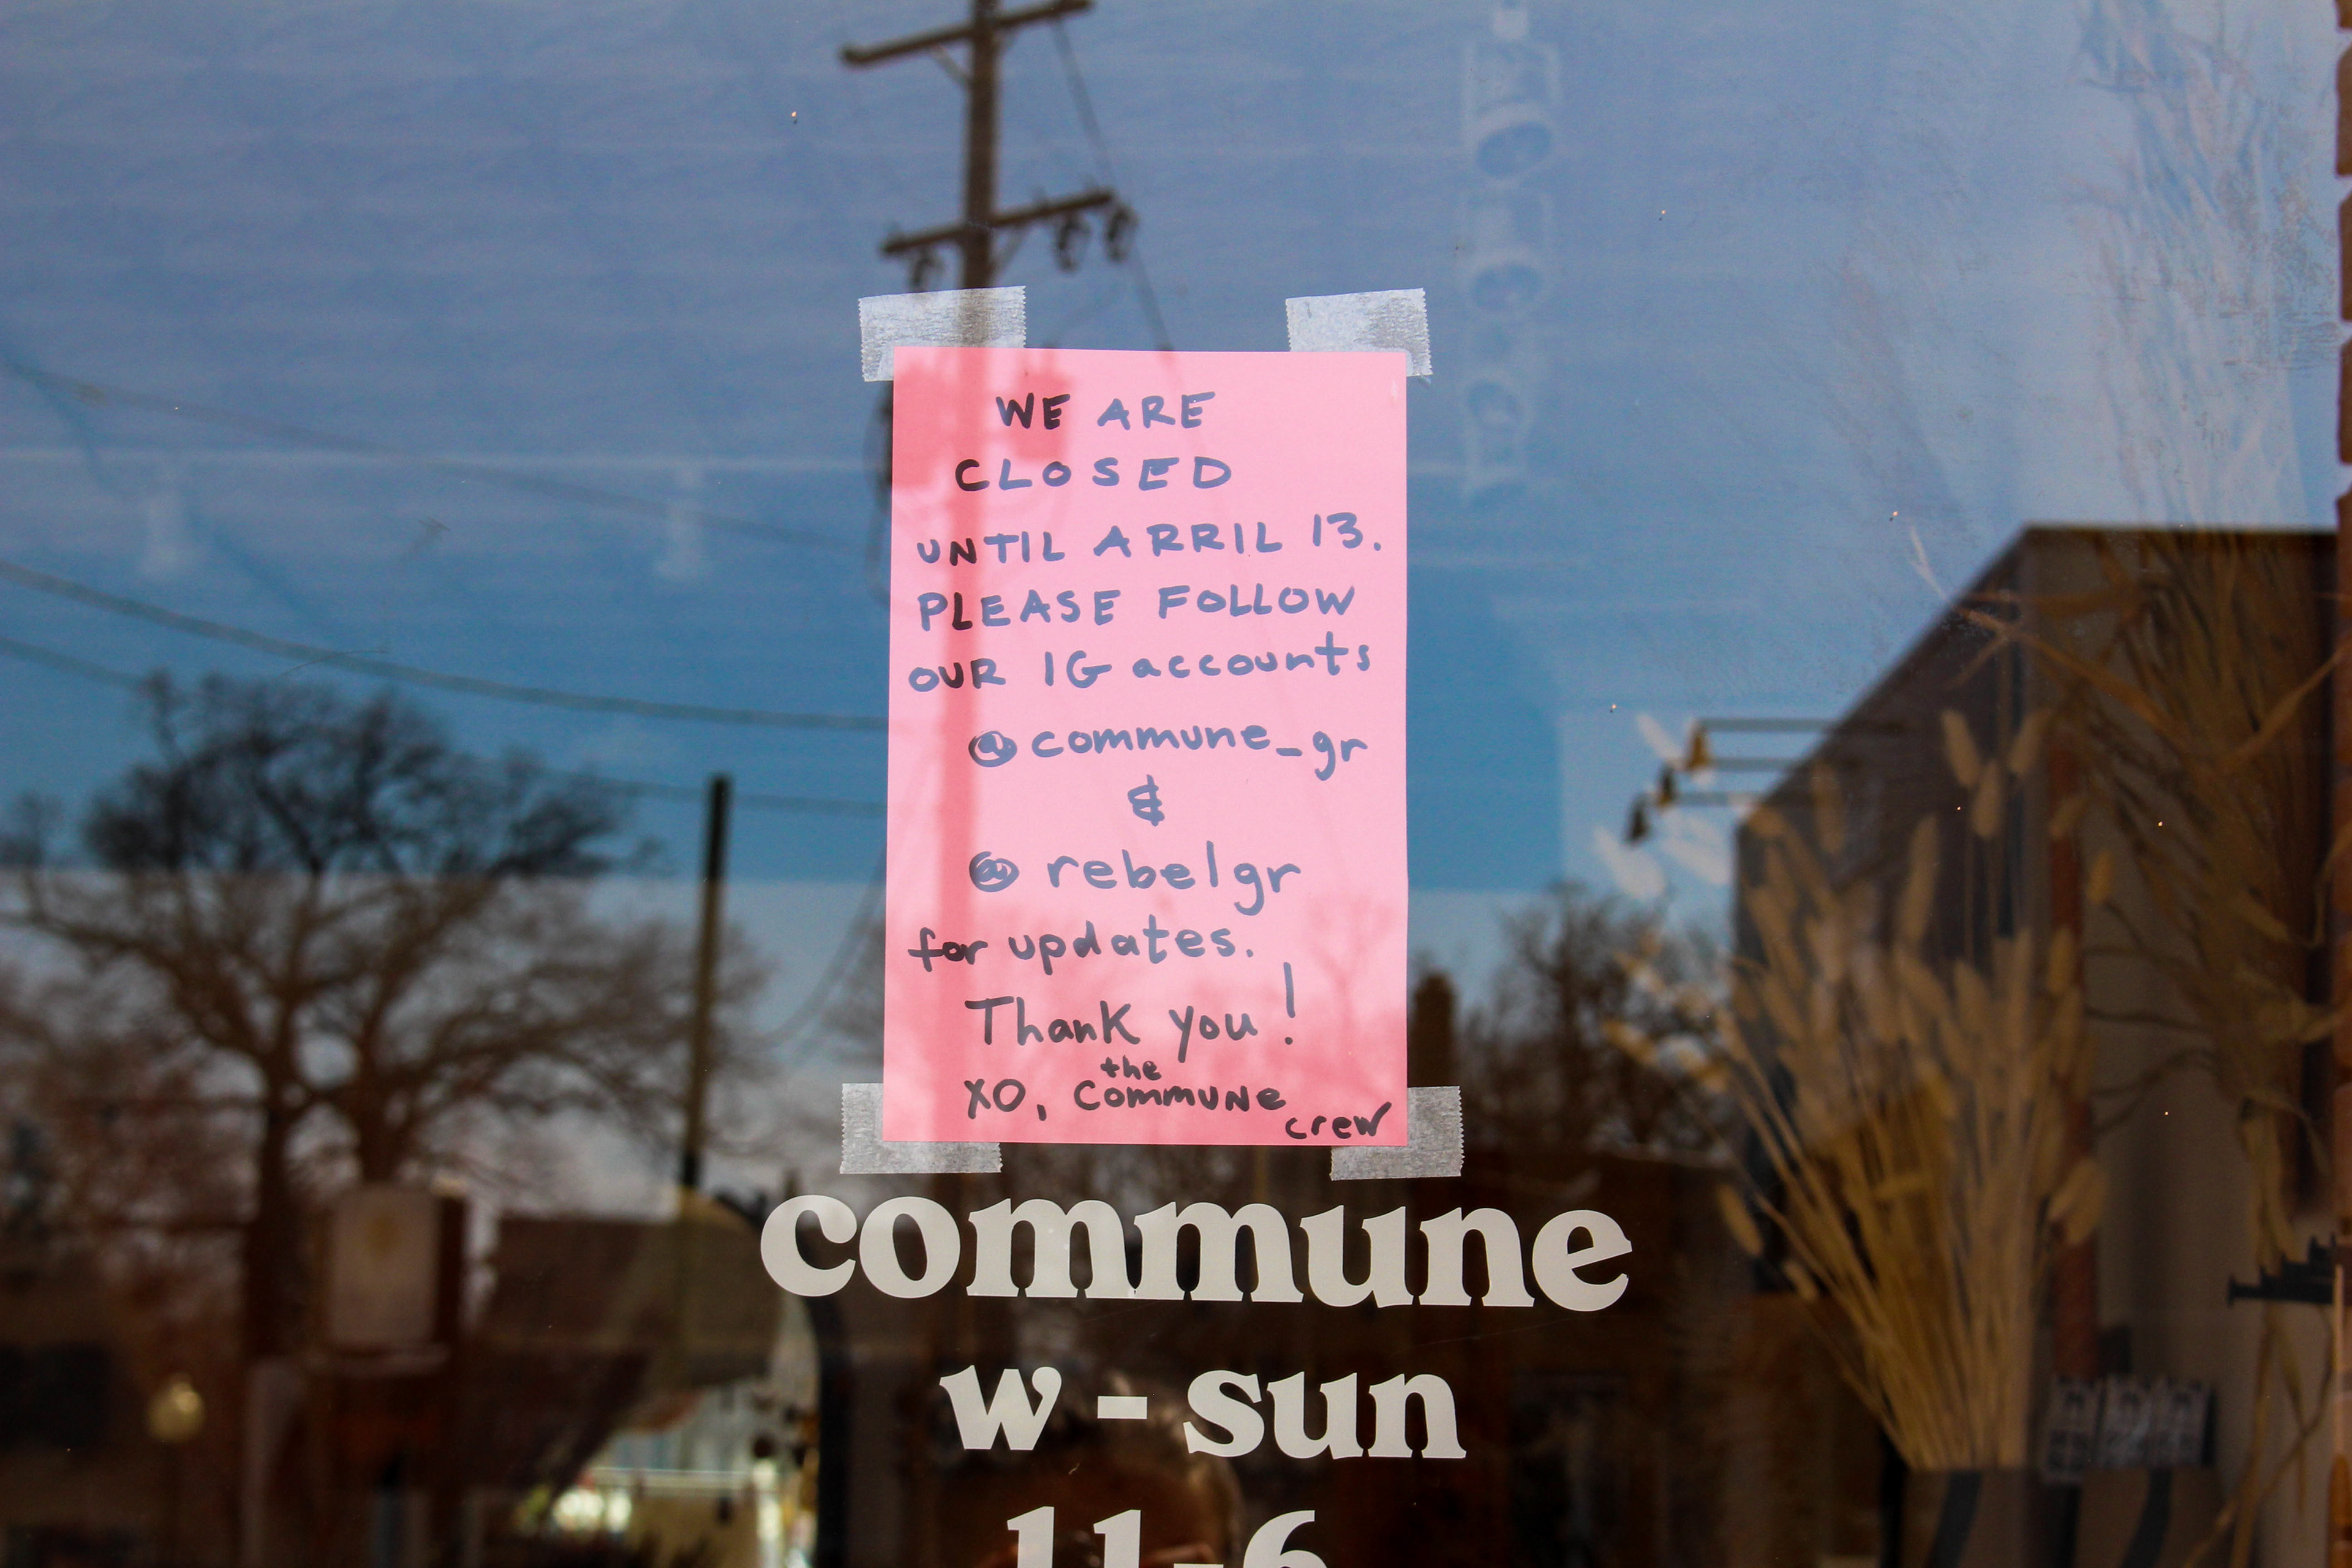 WE ARE
CLOSED
UNTIL ARRIL 13.
PLEASE FOLLOW
OUR IG accounts
@commune_gr
&
@rebelgr
for updates.
Thank you!
XO, the Commune
crew
commune
w - sun
11-6